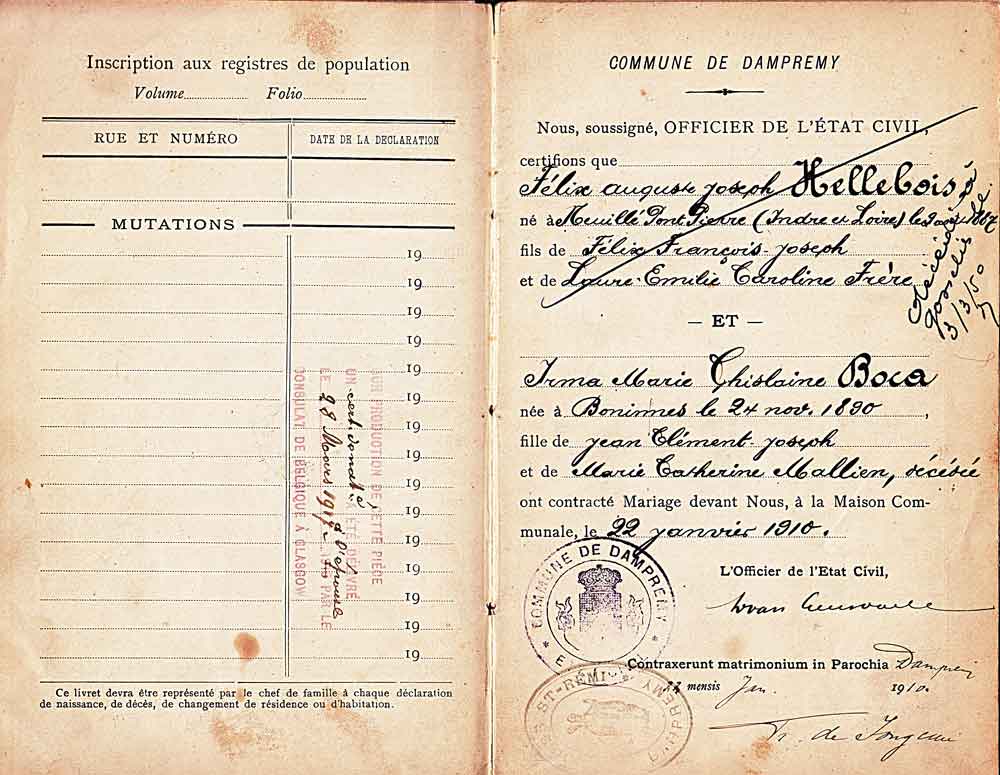 Inscription aux registres de population
Volume Folio
RUE ET NUMÉRO DATE DE LA DECLARATION
MUTATIONS
19
19
19
19
19
19
19
19
19
19
19
19
19
19
19
SUR PRODUCTION DE CETTE PIÈCE
UN cert. d'onat A ÉTÉ DÉLIVRÉ
LE 28 Mars 1917 PAR LE
CONSULAT DE BELGIQUE À GLASGOW
Ce livret devra être représenté par le chef de famille à chaque déclaration
de naissance, de décès, de changement de résidence ou d'habitation.
COMMUNE DE DAMPREMY
Nous, soussigné, OFFICIER DE L'ÉTAT CIVIL,
certifions que
Félix auguste joseph Hellebois
né à Neuillé Pont Pierre (Indre et Loire) le
fils de Félix François-Joseph
et de Laure-Emilie Caroline Frère
décédé à
Gosselies le
3/3/50
— ET —
Irma Marie Ghislaine Boca
née à Boninnes le 24 nov. 1890,
fille de Jean Clément-Joseph
et de Marie Catherine Mallien, décédée
ont contracté Mariage devant Nous, à la Maison Com-
munale, le 22 janvier 1910.
L'Officier de l'Etat Civil,
COMMUNE DE DAMPREMY
Contraxerunt matrimonium in Parochia Dampremy
22 mensis Jan. 1910.
ST-RÉMI DAMPREMY